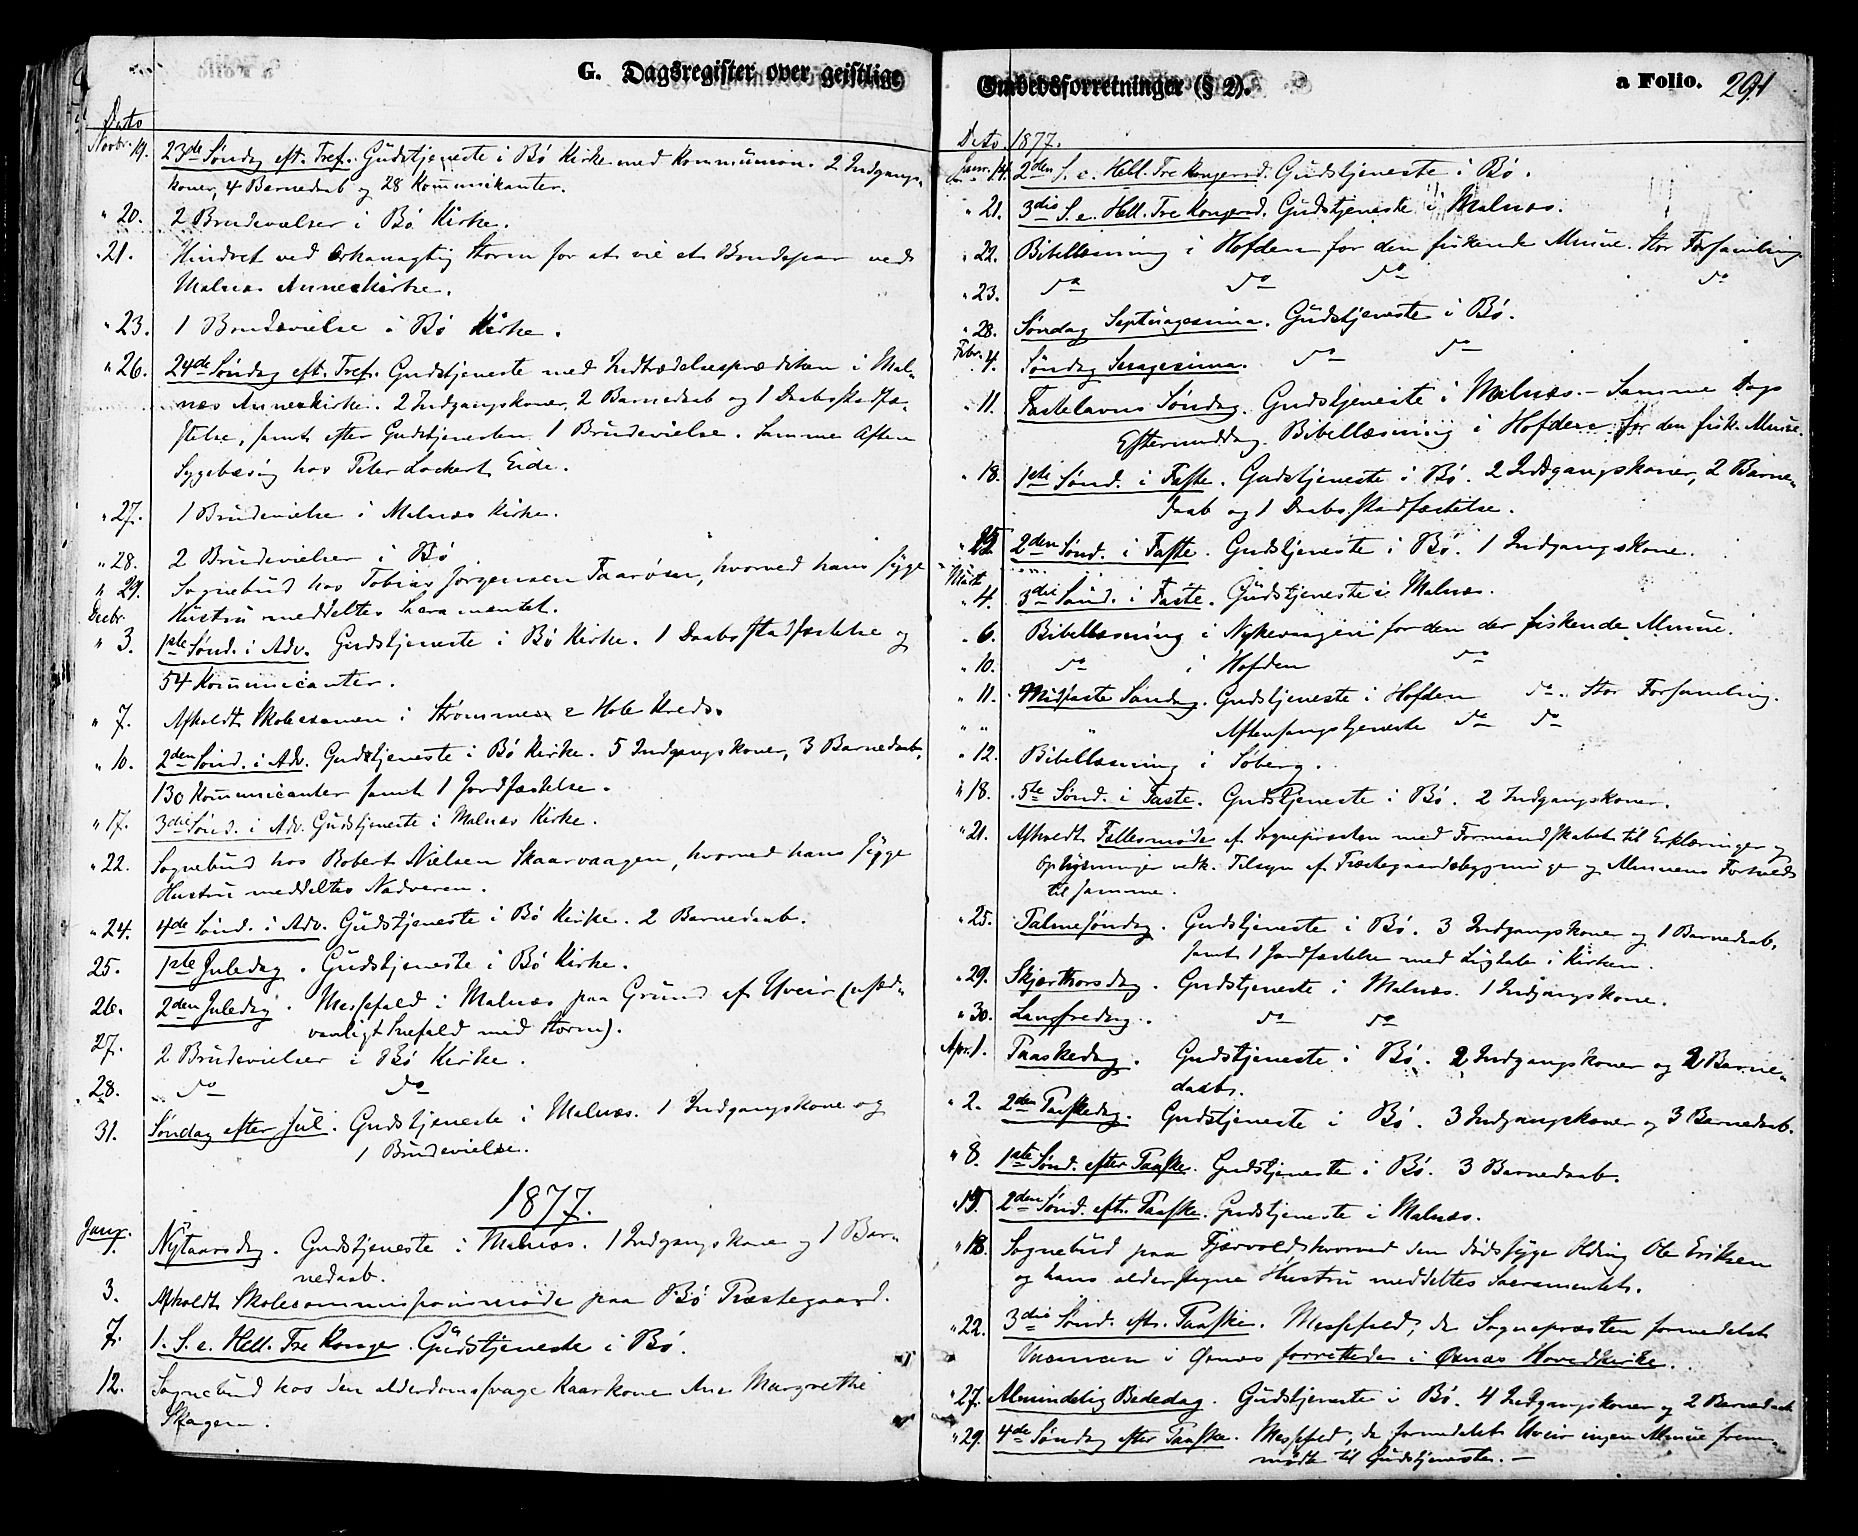 G. Dagsregister over geistlige
Dato
Novbr. 19. 23de Søndag eft. Tref. Gudstjeneste i Bø Kirke med Kommunion. 2 Indgangs-
koner, 4 Barnedaab og 28 Kommunikanter.
" 20. 2 Brudevielser i Bø Kirke.
" 21. Hindret ved orkanagtig Storm for at vie et Brudepar ved
Malnæs Annexkirke.
" 23. 1 Brudevielse i Bø Kirke.
" 26. 24de Søndag eft. Tref. Gudstjeneste med Indtrædelsesprædiken i Mal-
næs Annexkirke. 2 Indgangskoner, 2 Barnedaab og 1 Daabsstadfæ-
stelse, samt efter Gudstjenesten 1 Brudevielse. Samme Aften
Sygebesøg hos Peter Lockert Eide.
" 27. 1 Brudevielse i Malnæs Kirke.
" 28. 2 Brudevielser i Bø
" 29. Sognebud hos Tobias Jørgensen Taarøen, hvorved hans syge
Hustru meddeltes Sacramentet.
Decbr.
" 3. 1ste Sønd. i Adv. Gudstjeneste i Bø Kirke. 1 Daabsstadfæstelse og
54 Kommunicanter.
" 7. Afholdt Skoleexamen i Strømmen & Hole Kreds.
" 10. 2den Sønd. i Adv. Gudstjeneste i Bø Kirke. 5 Indgangskoner, 3 Barnedaab,
130 Kommunicanter samt 1 Jordfæstelse.
" 17. 3die Sønd. i Adv. Gudstjeneste i Malnæs Kirke.
" 22. Sognebud hos Robert Nielsen Skaarvaagen, hvorved hans syge
Hustru meddeltes Nadveren.
" 24. 4de Sønd. i Adv. Gudstjeneste i Bø Kirke. 2 Barnedaab.
25. 1ste Juledag. Gudstjeneste i Bø Kirke.
26. 2den Juledag. Messefald i Malnæs paa Grund af Uveir (usæd-
vanligt Snefald med Storm).
27. 2 Brudevielser i Bø Kirke.
" 28. do do
31. Søndag efter Jul. Gudstjeneste i Malnæs. 1 Indgangskone og
1 Brudevielse.
1877.
Janr.
1. Nytaarsdag. Gudstjeneste i Malnæs. 1 Indgangskone og 1 Bar-
nedaab.
3. Afholdt Skolecommissionsmøde paa Bø Præstegaard.
7. 1. S. e. Hell. Tre Konger. Gudstjeneste i Bø.
12. Sognebud hos den alderdomssvage Kaarkone Ane Margrethe
Skagen.
Embedsforretninger (§ 2). a Folio. 291
Dato. 1877.
Janr. 14. 2den S. e. Hell. Tre Kongersd. Gudstjeneste i Bø.
" 21. 3die S. e. Hell. Tre Kongersd. Gudstjeneste i Malnæs.
" 22. Bibellæsning i Hofden for den fiskende Almue. Stor Forsamling.
" 23. do do do do
" 28. Søndag Septuagesima. Gudstjeneste i Bø.
Febr. 4. Søndag Sexagesima. do do
" 11. Fastelavns Søndag. Gudstjeneste i Malnæs. - Samme Dags
Eftermiddag Bibellæsning i Hofden for den fisk. Almue.
" 18. 1ste Sønd. i Faste. Gudstjeneste i Bø. 2 Indgangskoner, 2 Barne-
daab og 1 Daabsstadfæstelse.
" 25. 2den Sønd. i Faste. Gudstjeneste i Bø. 1 Indgangskone.
Marts
" 4. 3die Sønd. i Faste. Gudstjeneste i Malnæs.
" 6. Bibellæsning i Nykvaagen for den der fiskende Almue.
" 10. do i Hofden do
" 11. Midfaste Søndag. Gudstjeneste i Hofden do. Stor Forsamling.
" " " Aftensangstjeneste do do
" 12. Bibellæsning i Søberg.
" 18. 5te Sønd. i Faste. Gudstjeneste i Bø. 2 Indgangskoner.
" 21. Afholdt Fællesmøde af Sognepræsten med Formandskabet til Erklæringer og
Oplysninger vedk. Tilsyn af Præstegaardsbygninger og Almuens Forhold
til samme.
" 25. Palmesøndag. Gudstjeneste i Bø. 3 Indgangskoner og 1 Barnedaab,
samt 1 Jordfæstelse med Ligtale i Kirken.
" 29. Skjærthorsdag. Gudstjeneste i Malnæs. 1 Indgangskone.
" 30. Langfredag. do do
Apr. 1. Paaskedag. Gudstjeneste i Bø. 2 Indgangskoner og 2 Barne-
daab.
" 2. 2den Paaskedag. Gudstjeneste i Bø. 3 Indgangskoner og 3 Barnedaab.
" 8. 1ste Sønd. efter Paaske. Gudstjeneste i Bø. 3 Barnedaab.
" 15. 2den Sønd. eft. Paaske. Gudstjeneste i Malnæs.
" 18. Sognebud paa Fjærvoll hvorved den dødssyge Olding Ole Eriksen
og hans alderstegne Hustru meddeltes Sacramentet.
" 22. 3die Sønd. eft. Paaske. Messefald, da Sognepræsten formedelst
Vacancen i Øxnæs forrettede i Øxnæs Hovedkirke.
" 27. Almindelig Bededag. Gudstjeneste i Bø. 4 Indgangskoner og 2 Barnedaab
" 29. 4de Søndag efter Paaske. Messefald, da formedelst Uveir ingen Almue frem-
mødte til Gudstjenesten. -